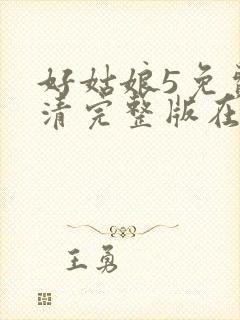 好姑娘5免费
清完整版在
王勇